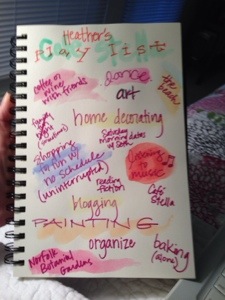 Heather's
Play List
coffee or
wine
with friends
dance
the
beach
art
home decorating
Saturday
morning dates
w/ Seth
Shopping
for fun w/
no schedule
(uninterrupted)
listening
to
music
reading
fiction
Café
Stella
blogging
PAINTING
organize
baking
(alone)
Norfolk
Botanical
Gardens